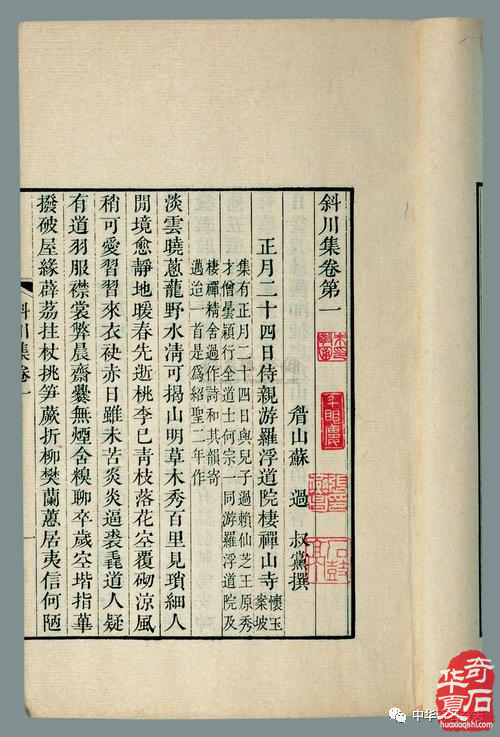 斜川集卷第一
睂山蘇 過 叔黨撰
正月二十四日侍親游羅浮道院棲禪山寺 懷玉
案坡
集有正月二十四日與兒子過賴仙芝王原秀
才僧曇穎行全道士何宗一同游羅浮道院及
棲禪精舍過作詩和其韻寄
邁迨一首是爲紹聖二年作
淡雲曉蔥蘢野水淸可揭山明草木秀百里見瑣細人
閒境愈靜地暖春先逝桃李已靑枝落花空覆砌涼風
稍可愛習習來衣袂赤日雖未苦炎炎逼裘毳道人疑
有道羽服襟裳弊晨齋爨無煙舍糗聊卒歲空堦指華
撥破屋緣薜荔拄杖挑笋蕨折柳樊蘭蕙居夷信何陋
斜川集卷一
一
石鼓亭
中华
奇石
华夏
huaxiaqishi.com